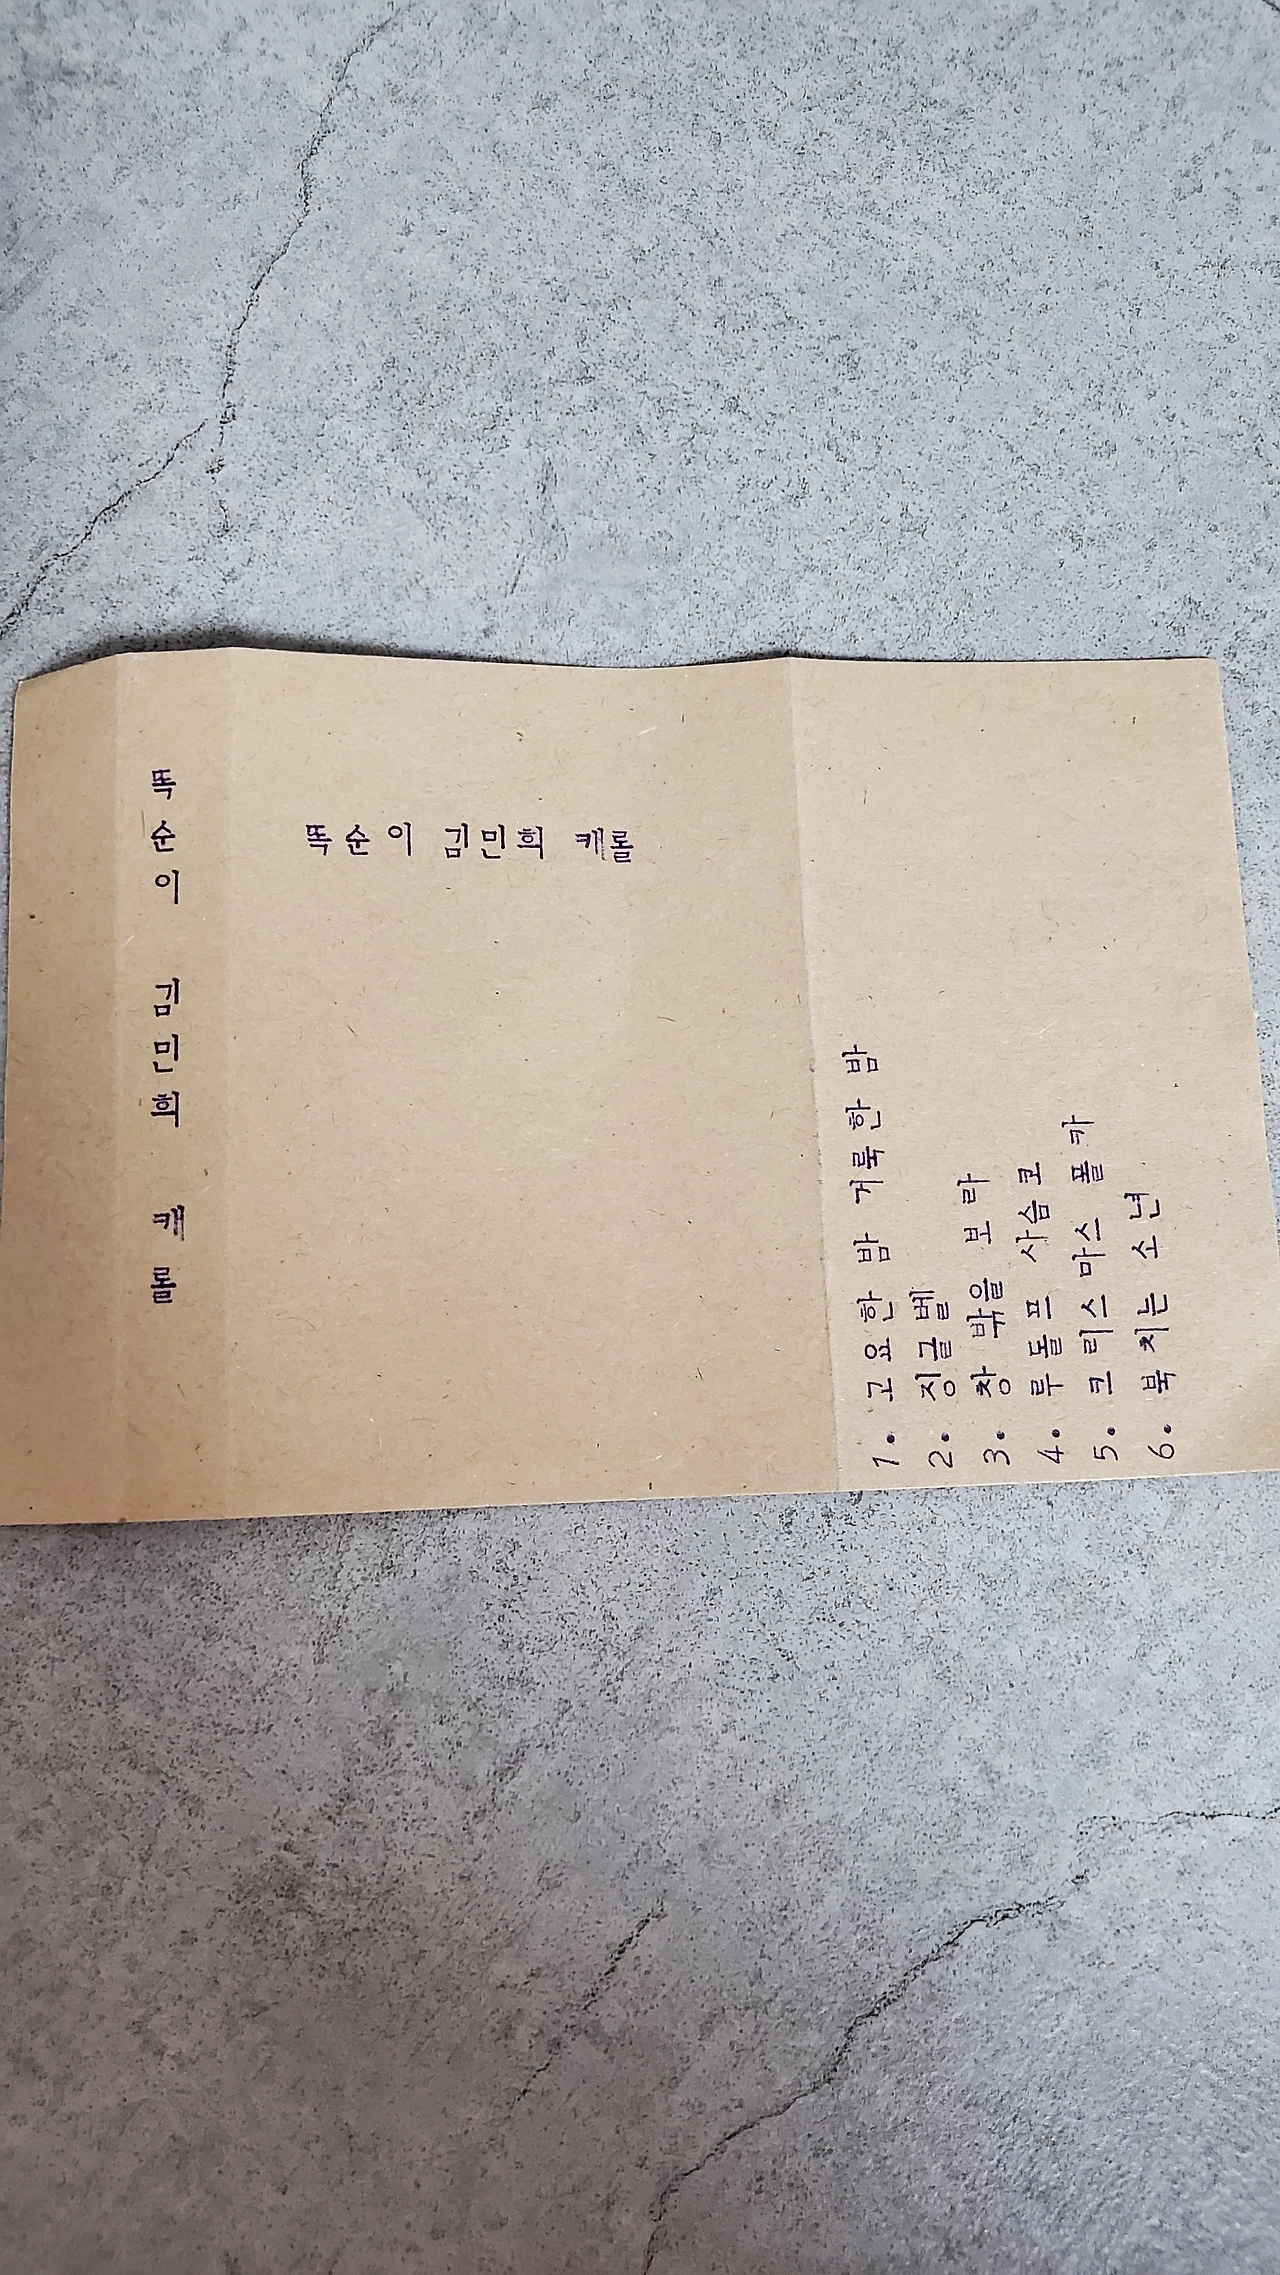 똑순이 김민희 캐롤
똑순이 김민희 캐롤
1. 고요한 밤 거룩한 밤
2. 징글벨
3. 창 밖을 보라
4. 루돌프 사슴코
5. 크리스마스 폴카
6. 북치는 소년